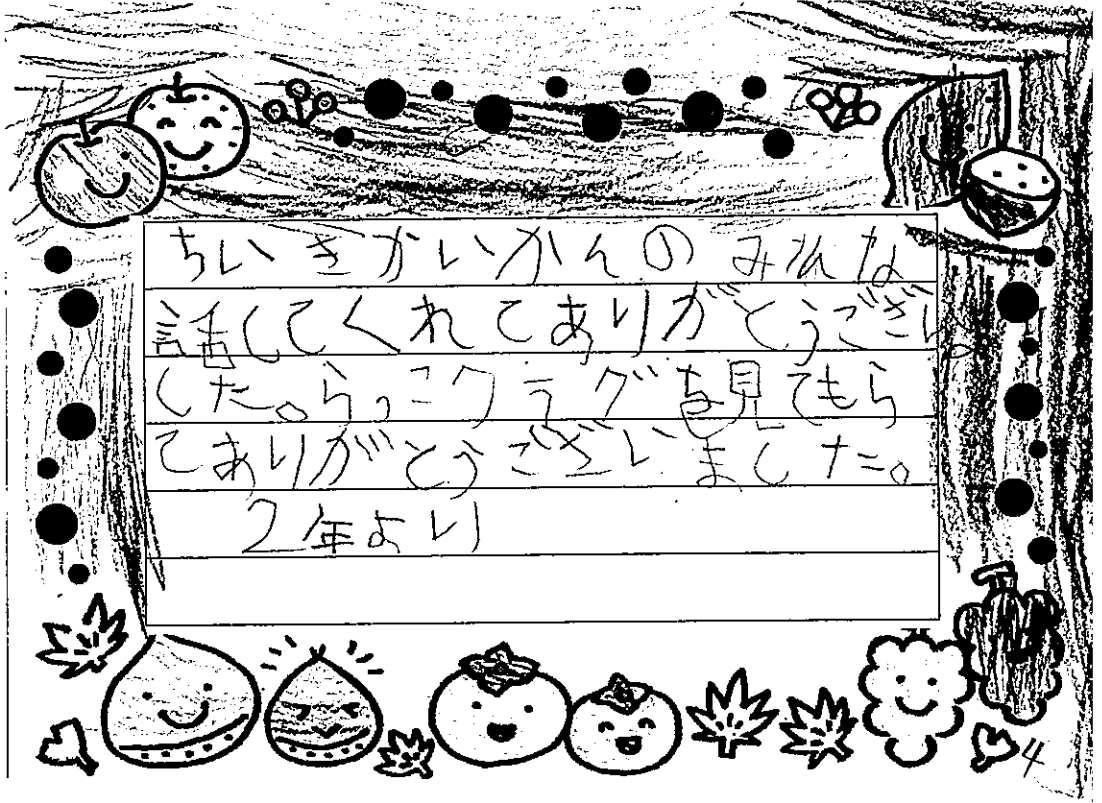 ちいきかいかんのみんな
話してくれてありがとうござい
した。らっこクラブを見てもら
てありがとうございました。
2年より
4